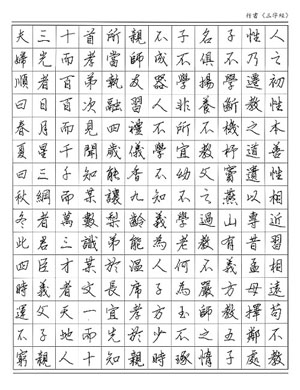 行書《三字經》
人之初性本善性相近習相遠苟不教
性乃遷教之道貴以專昔孟母擇鄰處
子不學斷機杼竇燕山有義方教五子
名俱揚養不教父之過教不嚴師之惰
子不學非所宜幼不學老何為玉不琢
不成器人不學不知義為人子方少時
親師友習禮儀香九齡能溫席孝於親
所當執融四歲能讓梨弟於長宜先知
首孝弟次見聞知某數識某文一而十
十而百百而千千而萬三才者天地人
三光者日月星三綱者君臣義父子親
夫婦順曰春夏曰秋冬此四時運不窮